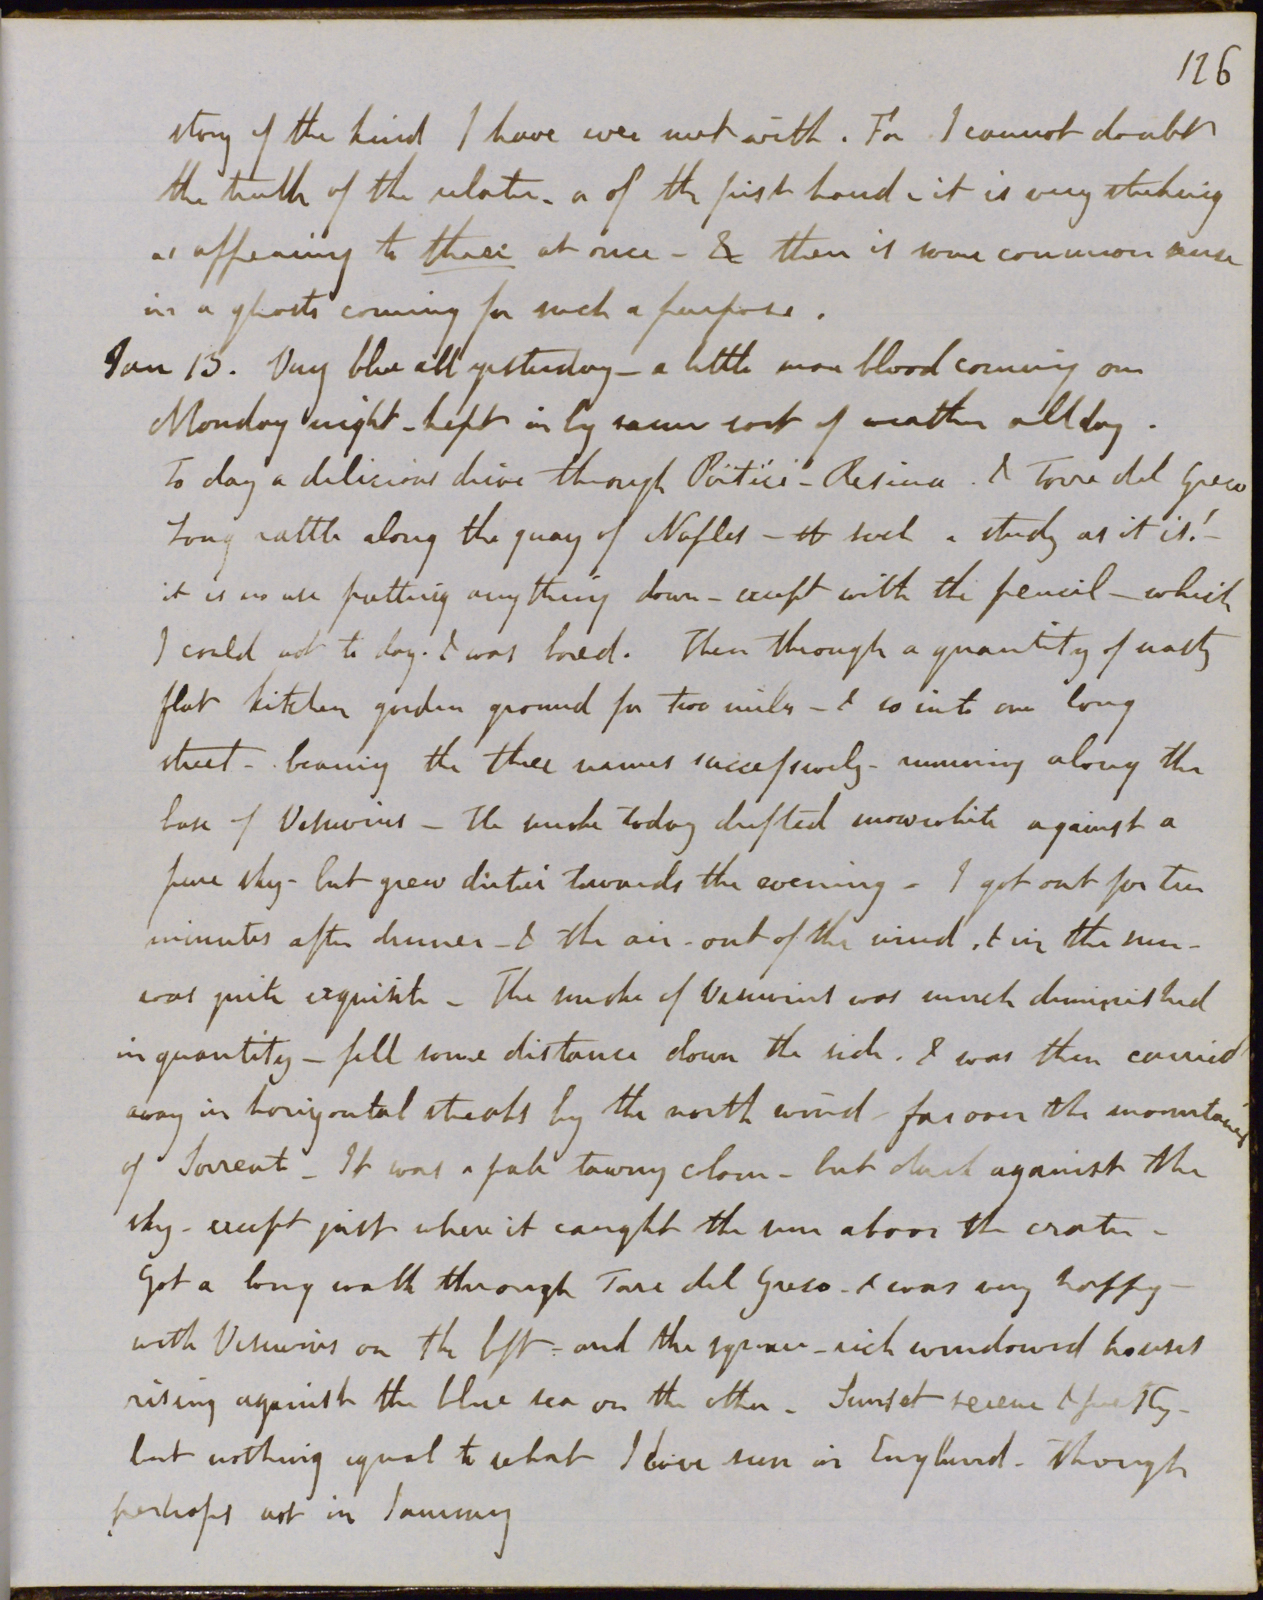 126
story of the kind I have ever met with. For I cannot doubt
the truth of the relater - or of the first hand - it is very striking
as appearing to three at once - & there is some common sense
in a ghosts coming for such a purpose.
Jan 13. Very blue all yesterday - a little more blood coming on
Monday night - kept in by same sort of weather all day.
To day a delicious drive through Portici - Resina. & Torre del Greco
Long rattle along the quay of Naples - such a study as it is! -
it is no use putting anything down - except with the pencil - which
I could not to day. & was bored. Then through a quantity of nasty
flat kitchen garden ground for two miles - & so into one long
street - bearing the three names successively - running along the
base of Vesuvius - the smoke today drifted snowwhite against a
pure sky - but grew dirtier towards the evening - I got out for ten
minutes after dinner - & the air - out of the wind, & in the sun -
was quite exquisite - The smoke of Vesuvius was much diminished
in quantity - fell some distance down the side. & was then carried
away in horizontal streaks by the north wind - far over the mountains
of Sorrent - It was a pale tawny colour - but dark against the
sky - except just where it caught the sun above the crater -
Got a long walk through Torre del Greco - & was very happy -
with Vesuvius on the left - and the square - rich windowed houses
rising against the blue sea on the other - Sunset serene & pretty -
but nothing equal to what I have seen in England - though
perhaps not in January